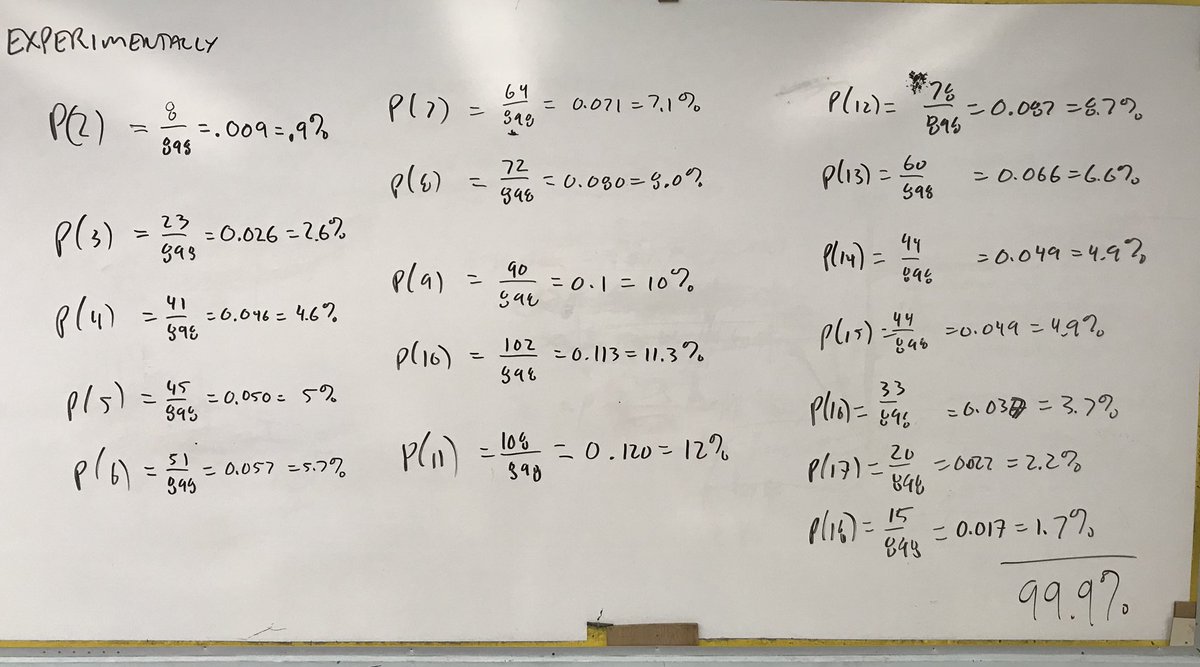 EXPERIMENTALLY
P(2) = 8/898 = .009 = .9%
P(3) = 23/898 = 0.026 = 2.6%
P(4) = 41/898 = 0.046 = 4.6%
P(5) = 45/898 = 0.050 = 5%
P(6) = 51/898 = 0.057 = 5.7%
P(7) = 64/898 = 0.071 = 7.1%
P(8) = 72/898 = 0.080 = 8.0%
P(9) = 90/898 = 0.1 = 10%
P(10) = 102/898 = 0.113 = 11.3%
P(11) = 108/898 = 0.120 = 12%
P(12) = 78/898 = 0.087 = 8.7%
P(13) = 60/898 = 0.066 = 6.6%
P(14) = 44/898 = 0.049 = 4.9%
P(15) = 44/898 = 0.049 = 4.9%
P(16) = 33/898 = 0.037 = 3.7%
P(17) = 20/898 = 0.022 = 2.2%
P(18) = 15/898 = 0.017 = 1.7%
99.9%